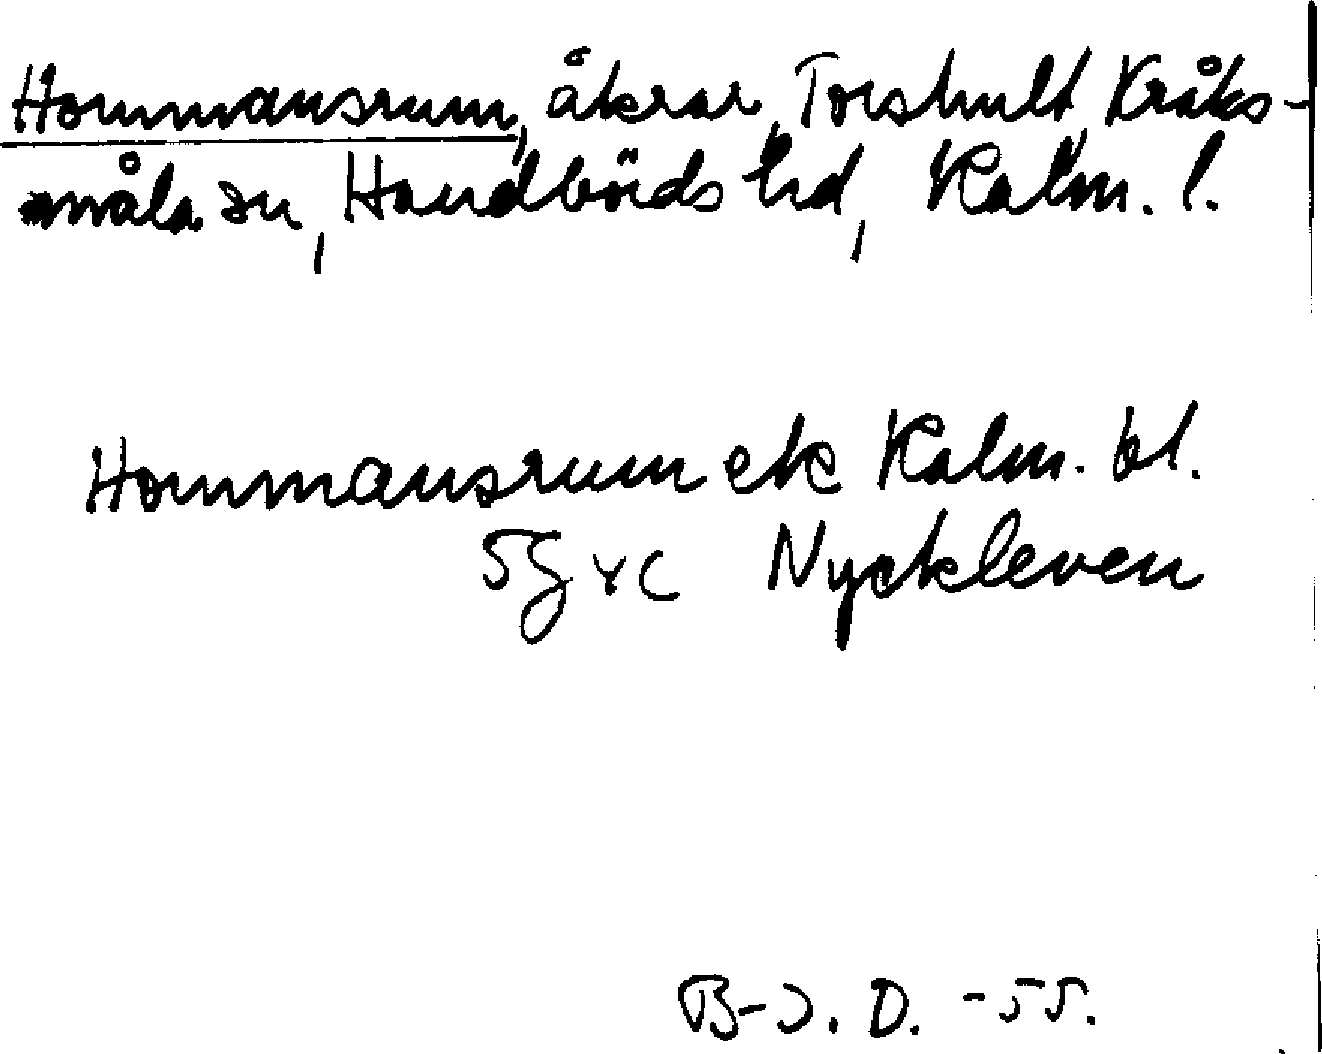 Hommansrum, åkrar, Torshult, Kråks-
måla sn, Handbörds hd, Kalm. l.
Hommansrum ek Kalm. bl.
5g xc Nyckleven
B-J. D. -55.